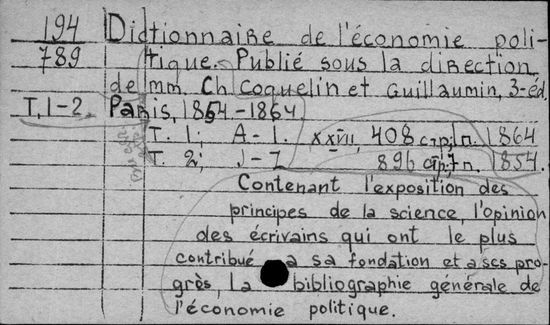 194 Dictionnaire de l'économie poli-
789 tique. Publié sous la direction,
de mm. Ch Coquelin et Guillaumin, 3-éd,
T, 1-2. Paris, 1854-1864
T. 1; A-I. XXVII, 408 стр, 1 п. 1864
T. 2; J-Z 896 стр, 7 п. 1854.
Contenant l'exposition des
principes de la science, l'opinion
des écrivains qui ont le plus
contribué a sa fondation et a scs pro-
grès, la bibliographie générale de
l'économie politique.